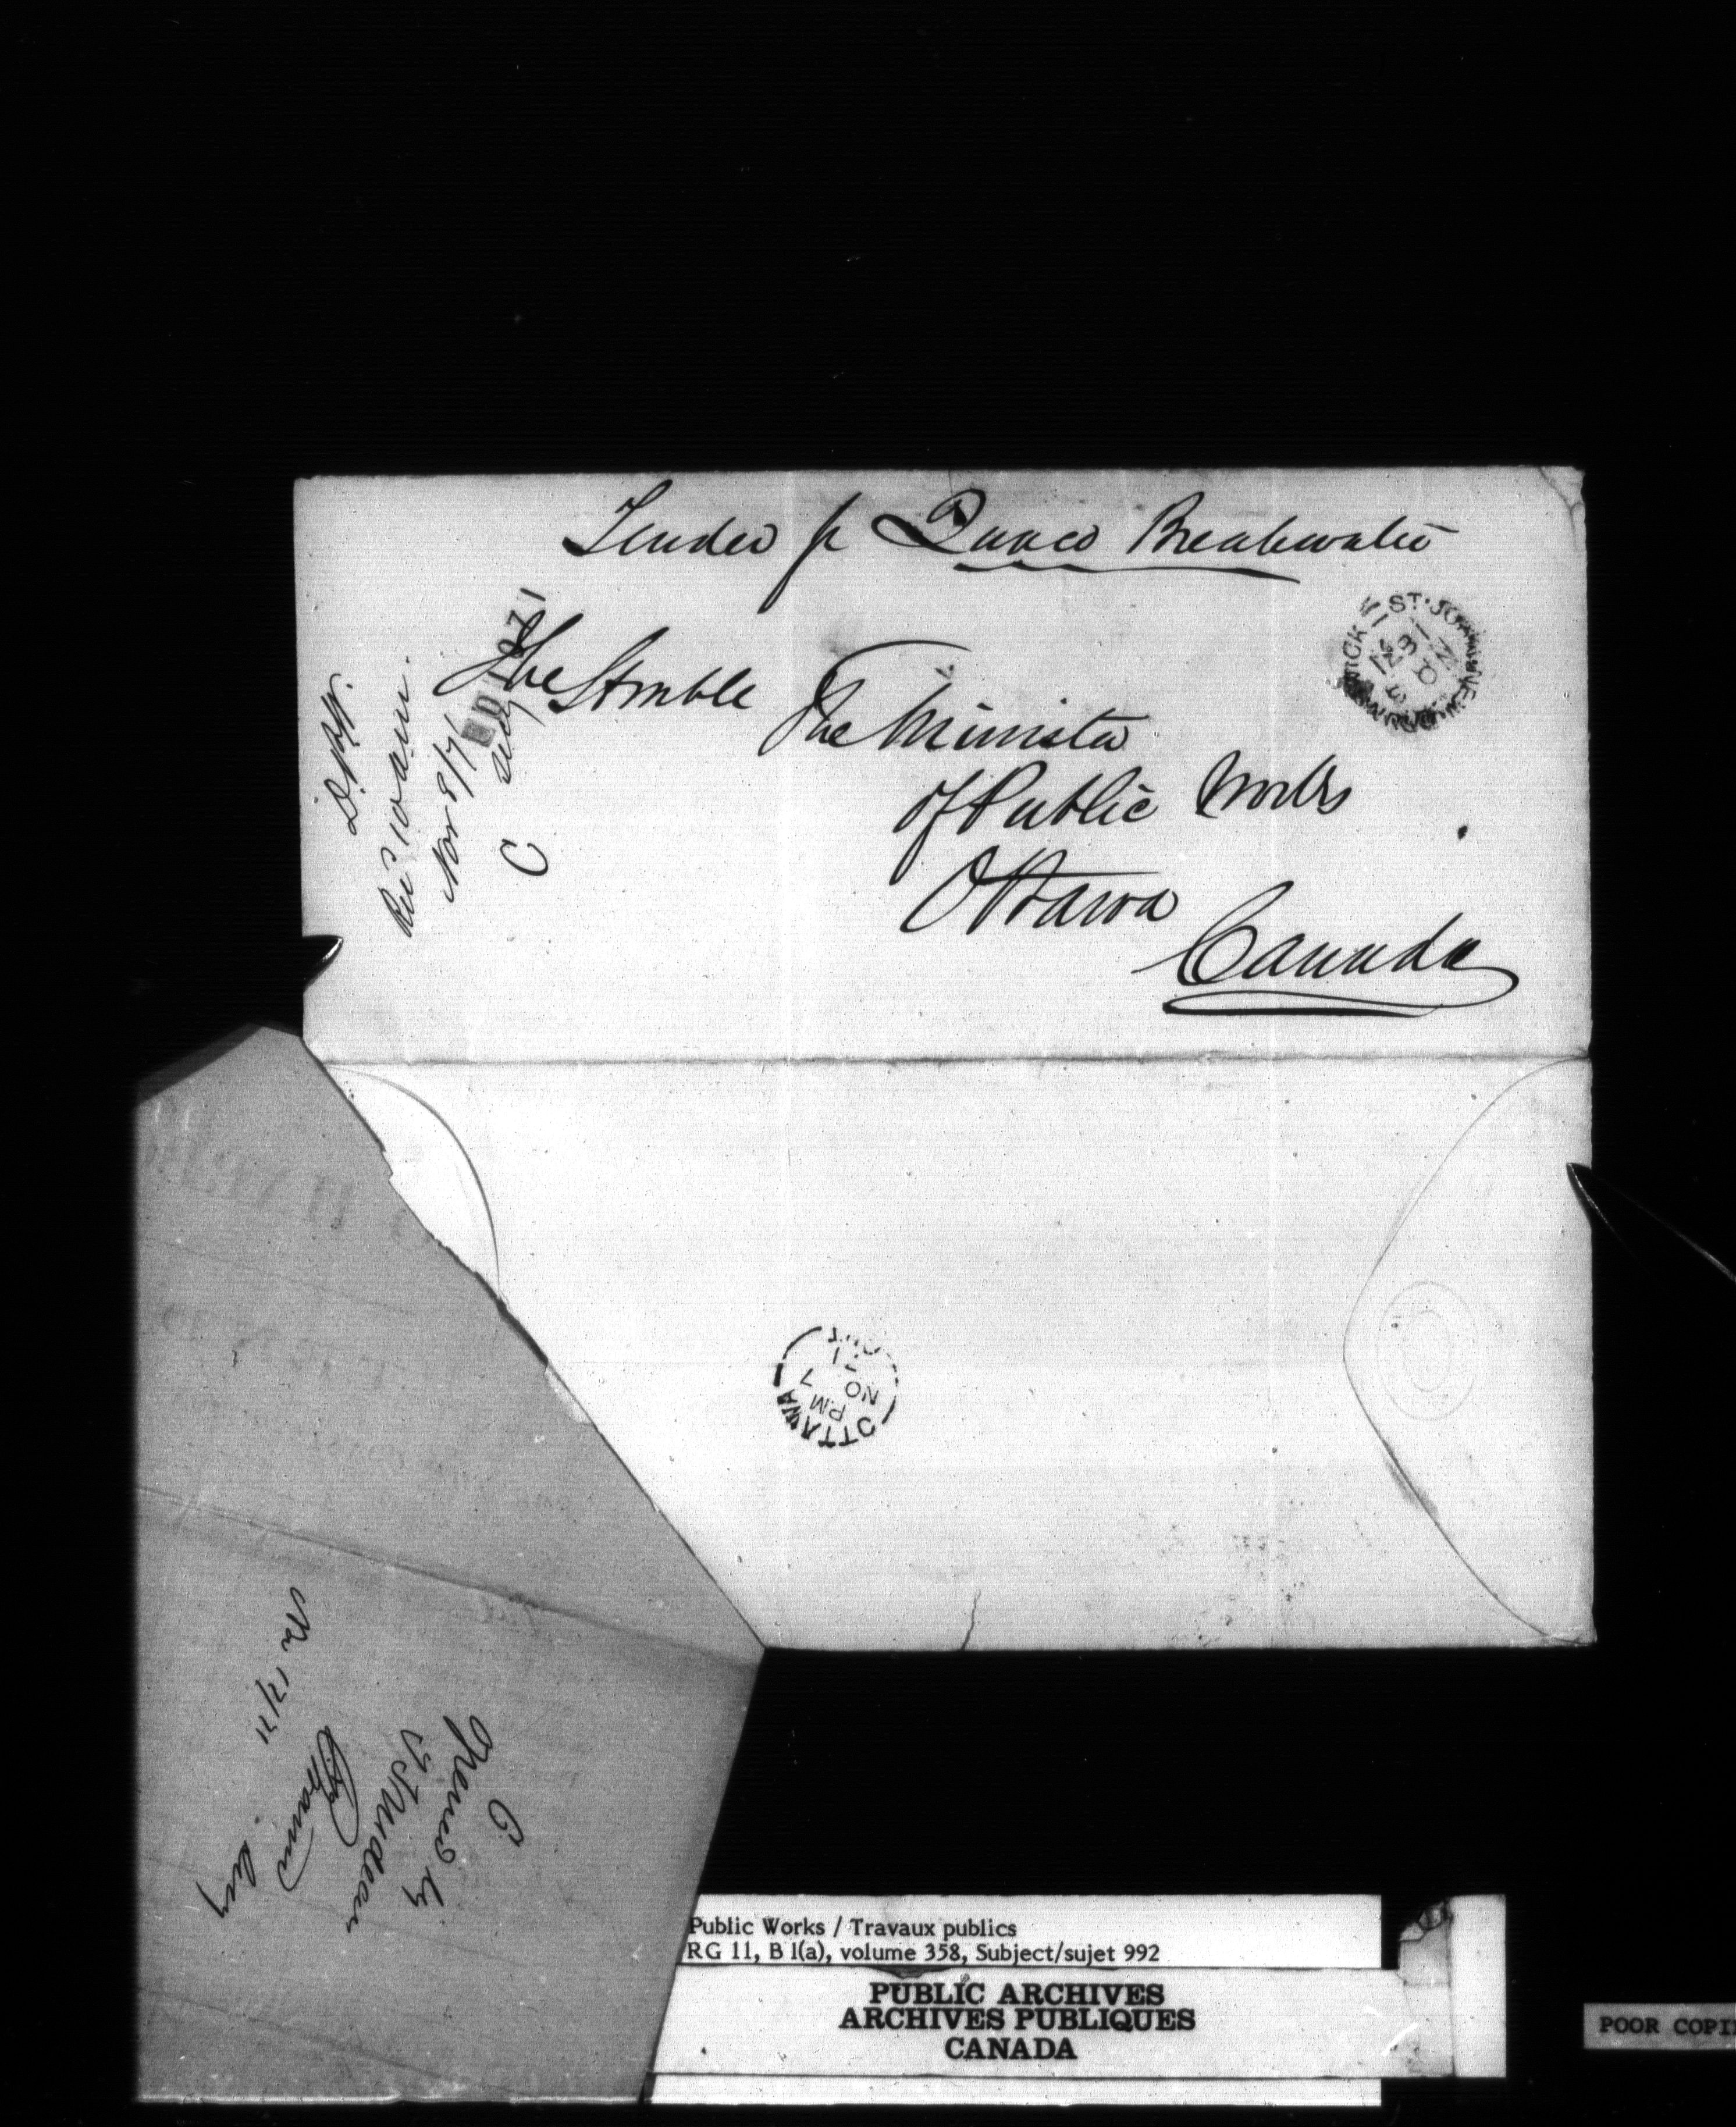 Tender for Quaco Breakwater
The Honble
The Minister
of Public Works
Ottawa
Canada
D.P.W.
Rec'd 10 a.m.
Nov 8/71
C
ST. JOHN NEW BRUNSWICK
NO 3
1871
OTTAWA
PM
NO 7
71
ONT
C
Opened by
Public Works / Travaux publics
RG 11, B 1(a), volume 358, Subject/sujet 992
PUBLIC ARCHIVES
ARCHIVES PUBLIQUES
CANADA
POOR COPI